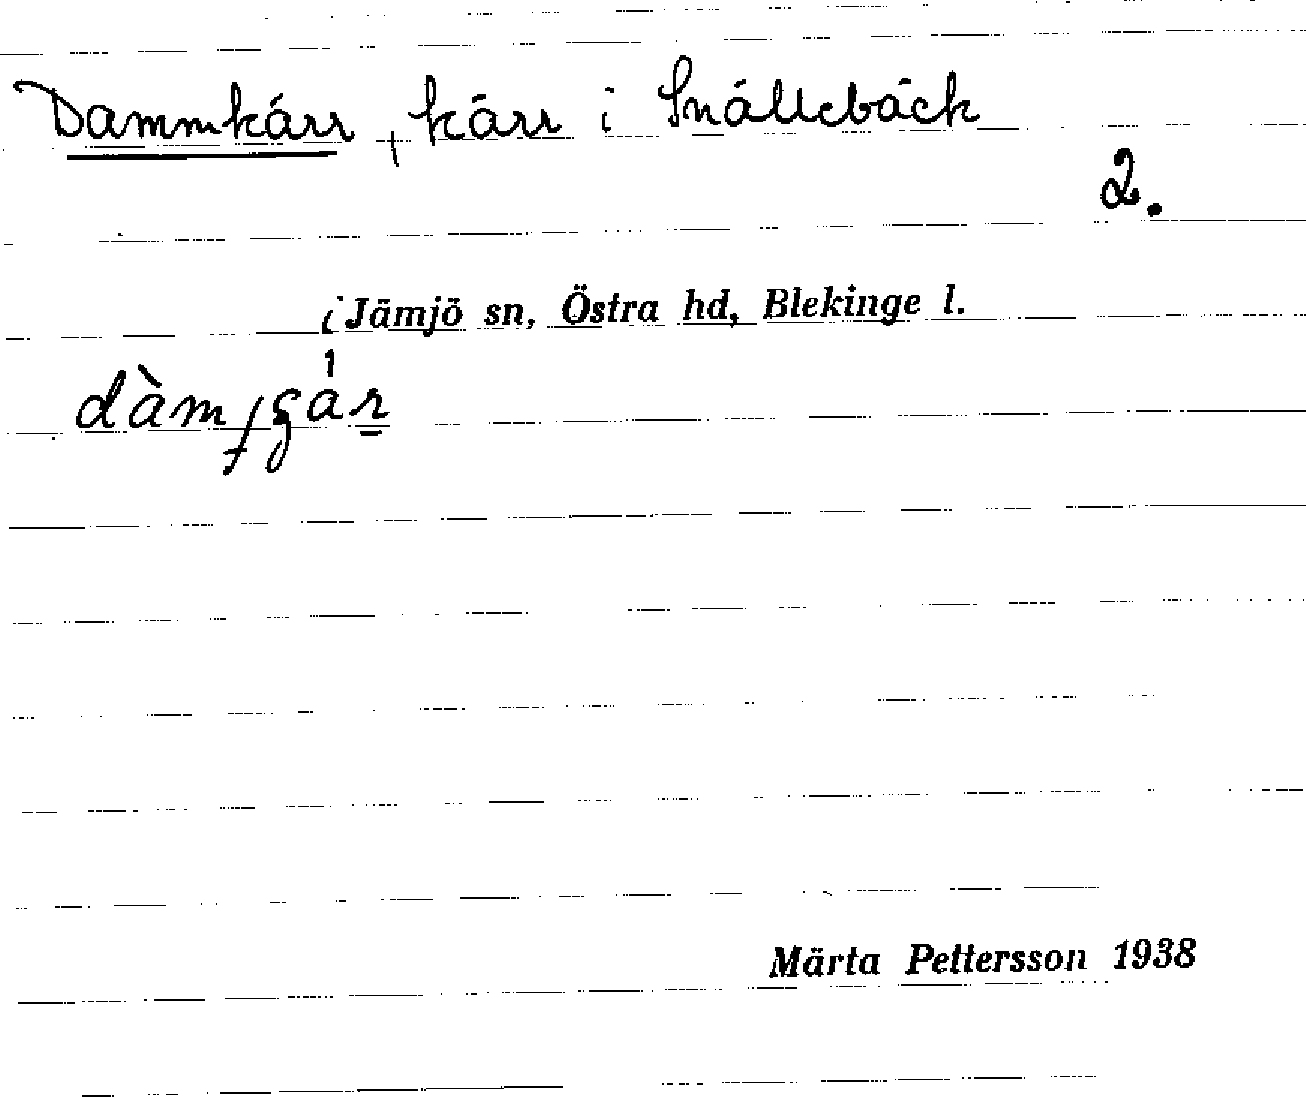 Dammkärr, kärr i Snällebäck
2.
i Jämjö sn, Östra hd, Blekinge l.
Märta Pettersson 1938